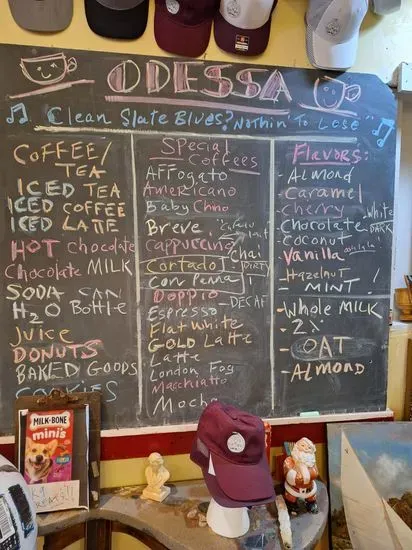 ODESSA
Clean Slate Blues? "Nothin' To Lose"
COFFEE/
TEA
ICED TEA
ICED COFFEE
ICED LATTE
HOT chocolate
Chocolate MILK
SODA CAN
H2O Bottle
JUICE
DONUTS
BAKED GOODS
COOKIES
Special
Coffees
AFFogato
Americano
Baby Chino
Breve
Cappuccino
Cortado
Con Panna
Doppio
Espresso
Flat White
GOLD Latte
Latte
London Fog
Macchiatto
Mocha
Chai
DIRTY
-DECAF
Flavors:
- ALMOND
- CARAMEL
- CHERRY
- CHOCOLATE
White
DARK
- COCONUT
Vanilla
- HAZELNUT
- MINT!
- Whole MILK
- 2%
- OAT
- ALMOND
MILK-BONE
minis